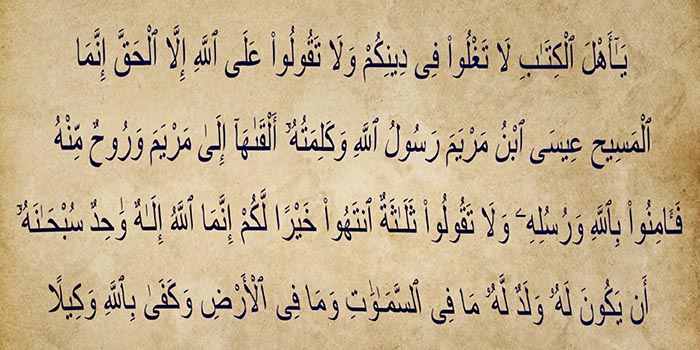 يَـٰٓأَهْلَ ٱلْكِتَـٰبِ لَا تَغْلُوا۟ فِى دِينِكُمْ وَلَا تَقُولُوا۟ عَلَى ٱللَّهِ إِلَّا ٱلْحَقَّ إِنَّمَا
ٱلْمَسِيحُ عِيسَى ٱبْنُ مَرْيَمَ رَسُولُ ٱللَّهِ وَكَلِمَتُهُۥٓ أَلْقَىٰهَآ إِلَىٰ مَرْيَمَ وَرُوحٌ مِّنْهُ
فَـَٔامِنُوا۟ بِٱللَّهِ وَرُسُلِهِۦ وَلَا تَقُولُوا۟ ثَلَـٰثَةٌ ٱنتَهُوا۟ خَيْرًا لَّكُمْ إِنَّمَا ٱللَّهُ إِلَـٰهٌ وَٰحِدٌ سُبْحَـٰنَهُۥٓ
أَن يَكُونَ لَهُۥ وَلَدٌ لَّهُۥ مَا فِى ٱلسَّمَـٰوَٰتِ وَمَا فِى ٱلْأَرْضِ وَكَفَىٰ بِٱللَّهِ وَكِيلًا